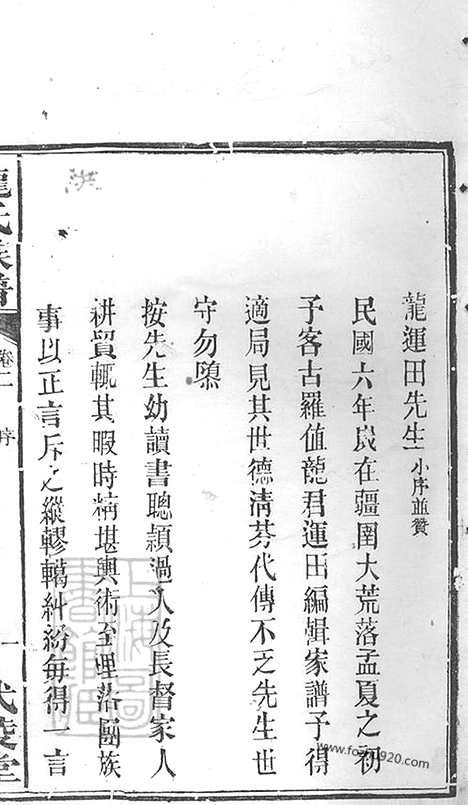 龍運田先生小序並贊
民國六年歲在疆圉大荒落孟夏之初
予客古羅值龍君運田編輯家譜予得
適局見其世德清芬代傳不乏先生世
守勿隳
按先生幼讀書聰穎過人及長督家人
耕貿輒其暇時精堪輿術至理落團族
事以正言斥之縱轇轕糾紛每得一言
龍氏族譜
卷二
序
一
武陵堂
上海圖書館藏
www.fozu1920.com